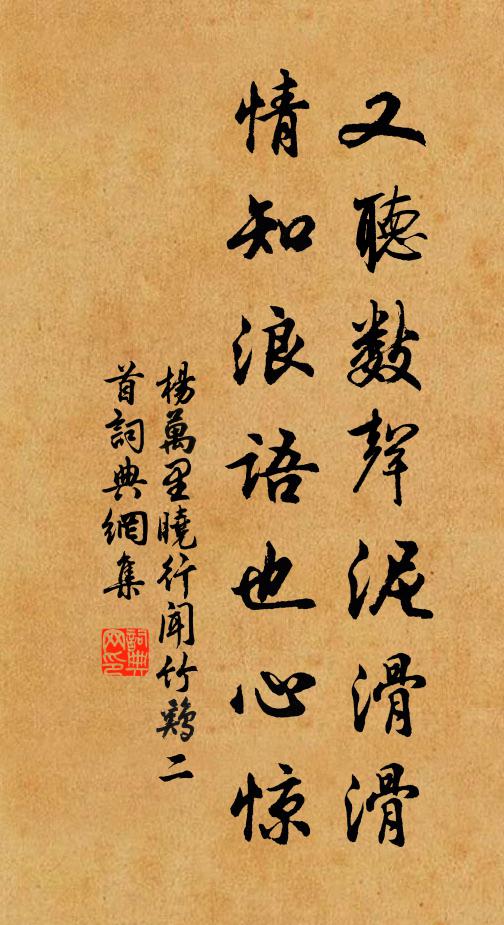 又聽數聲泥滑滑
情知浪語也心惊
楊萬里曉行闻竹鷄二
首詞典網集
詞典
网印